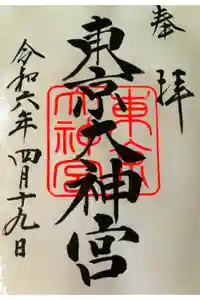 奉拝
東京大神宮
東京大神宮
令和六年四月十九日